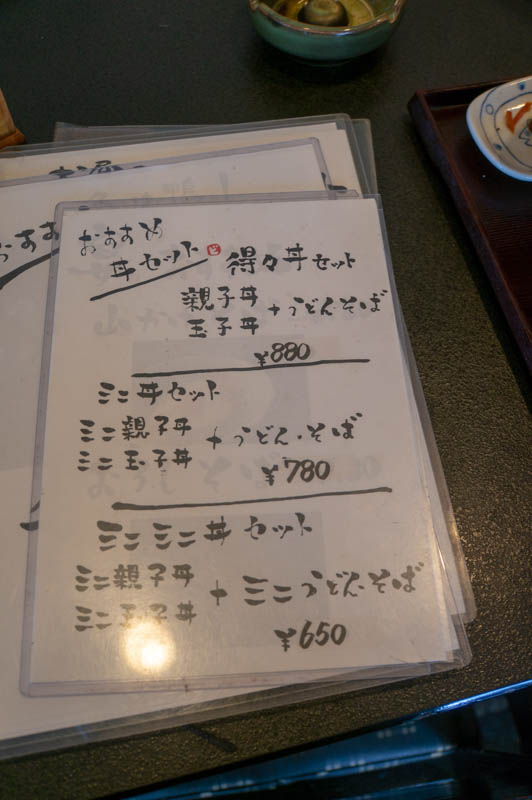 おすすめ
おすすめ
丼セット
得々丼セット
親子丼
玉子丼
+うどん・そば
¥880
ミニ丼セット
ミニ親子丼
ミニ玉子丼
+うどん・そば
¥780
ミニミニ丼セット
ミニ親子丼
ミニ玉子丼
+ミニうどん・そば
¥650